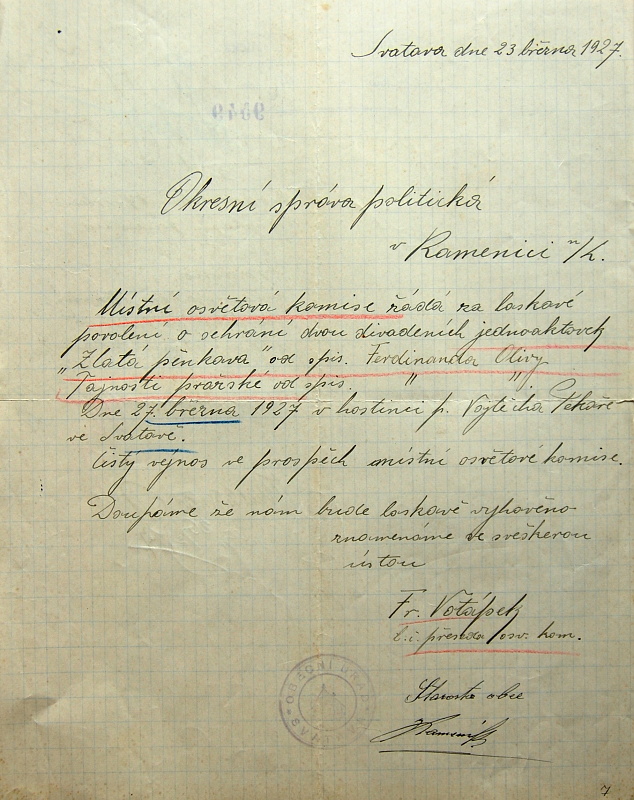 Svatava dne 23 března 1927.
9049
Okresní správa politická
v Kamenici n/L.
Místní osvětová komise žádá za laskavé
povolení o sehrání dvou divadeních jednoaktovek
„Zlatá pěnkava" od spis. Ferdinanda Olivy
Tajnosti pražské od spis. " ".
Dne 27. března 1927 v hostinci p. Vojtěcha Pekaře
ve Svatavě.
Čistý vejnos ve prospěch místní osvětové komise.
Doufáme že nám bude laskavě vyhověno
znamenáme ve sveškerou
ústou
Fr. Votápek
t. č. předseda osv. kom.
Starosta obce
OBECNÍ ÚŘAD
7